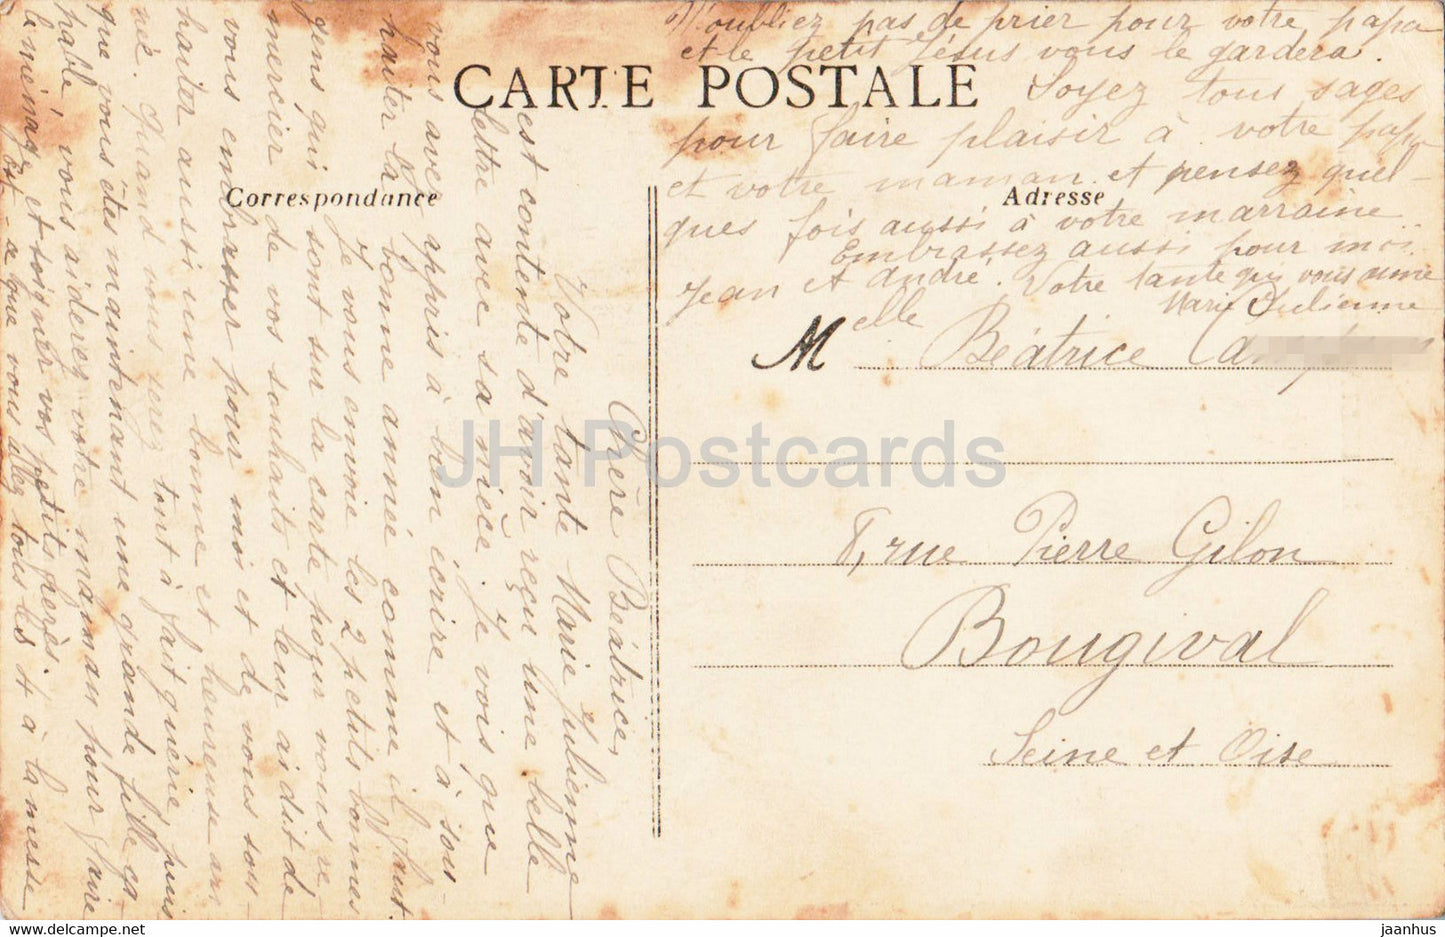 CARTE POSTALE
Correspondance
Adresse
Chère Béatrice,
Votre tante Marie Julienne
est contente d'avoir reçu une belle
lettre avec sa nièce. je vois que
vous avez appris à bien écrire et à sou-
haiter la bonne année comme il faut.
Je vous envoie les 2 petits bonnes
gens qui sont sur la carte pour vous re
mercier de vos souhaits et leur ai dit de
vous embrasser pour moi et de vous sou-
haiter aussi une bonne et heureuse an
née. Quand vous serez tout à fait guérie, puis
que vous êtes maintenant une grande fille ca
pable, vous aiderez votre maman pour faire
le ménage et soigner vos petits frères.
Est-ce que vous allez tous les 4 à la messe
N'oubliez pas de prier pour votre papa
et le petit Jésus vous le gardera.
Soyez tous sages
pour faire plaisir à votre papa
et votre maman et pensez quel-
ques fois aussi à votre marraine
Embrassez aussi pour moi
Jean et André. Votre tante qui vous aime
Marie Julienne
Melle Béatrice
8, rue Pierre Gilon
Bougival
Seine et Oise
JH Postcards
jaanhus